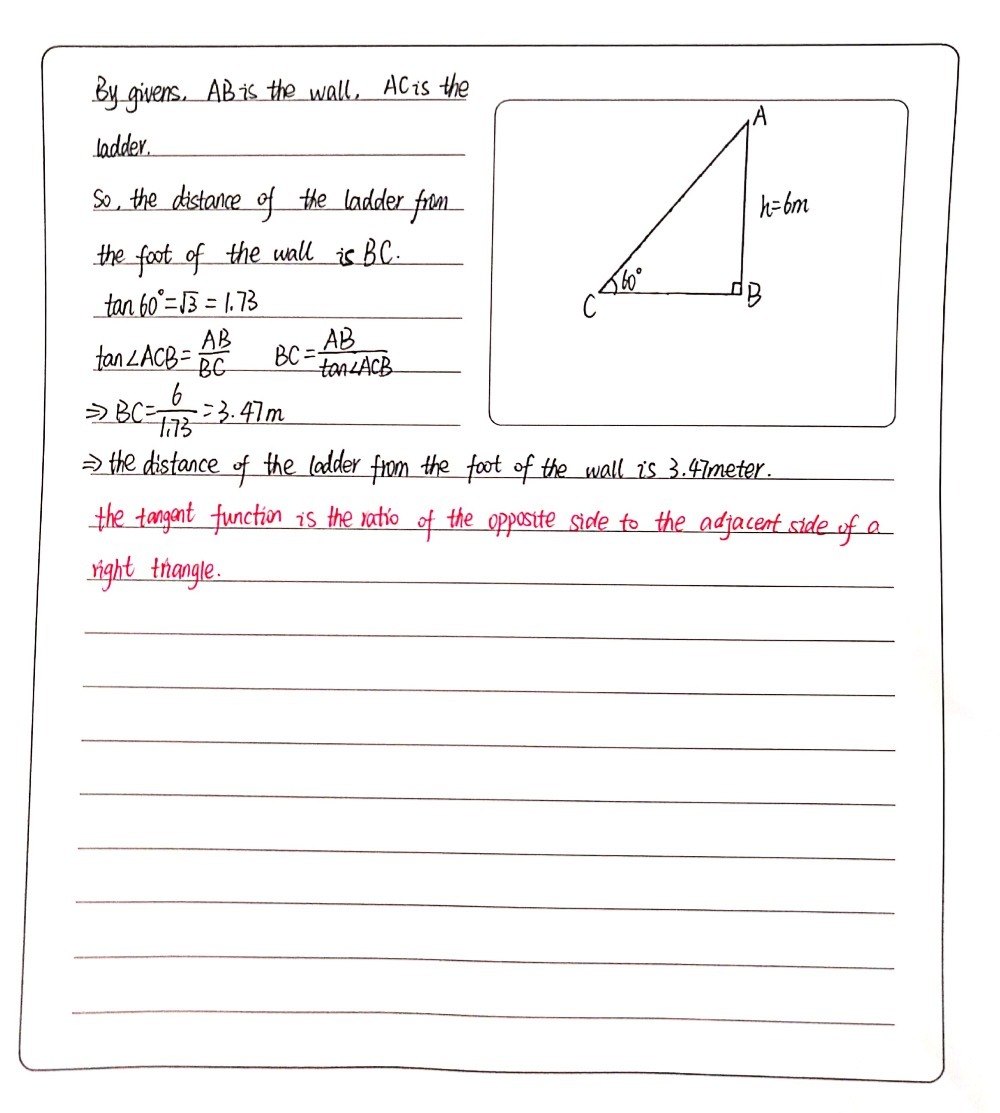 By givens, AB is the wall, AC is the
ladder.
So, the distance of the ladder from
the foot of the wall is BC.
tan60°=√3=1.73
tan∠ACB=AB/BC BC=AB/tan∠ACB
⇒BC=6/1.73=3.47m
⇒the distance of the ladder from the foot of the wall is 3.47meter.
the tangent function is the ratio of the opposite side to the adjacent side of a
right triangle.
A
h=6m
60°
C
B